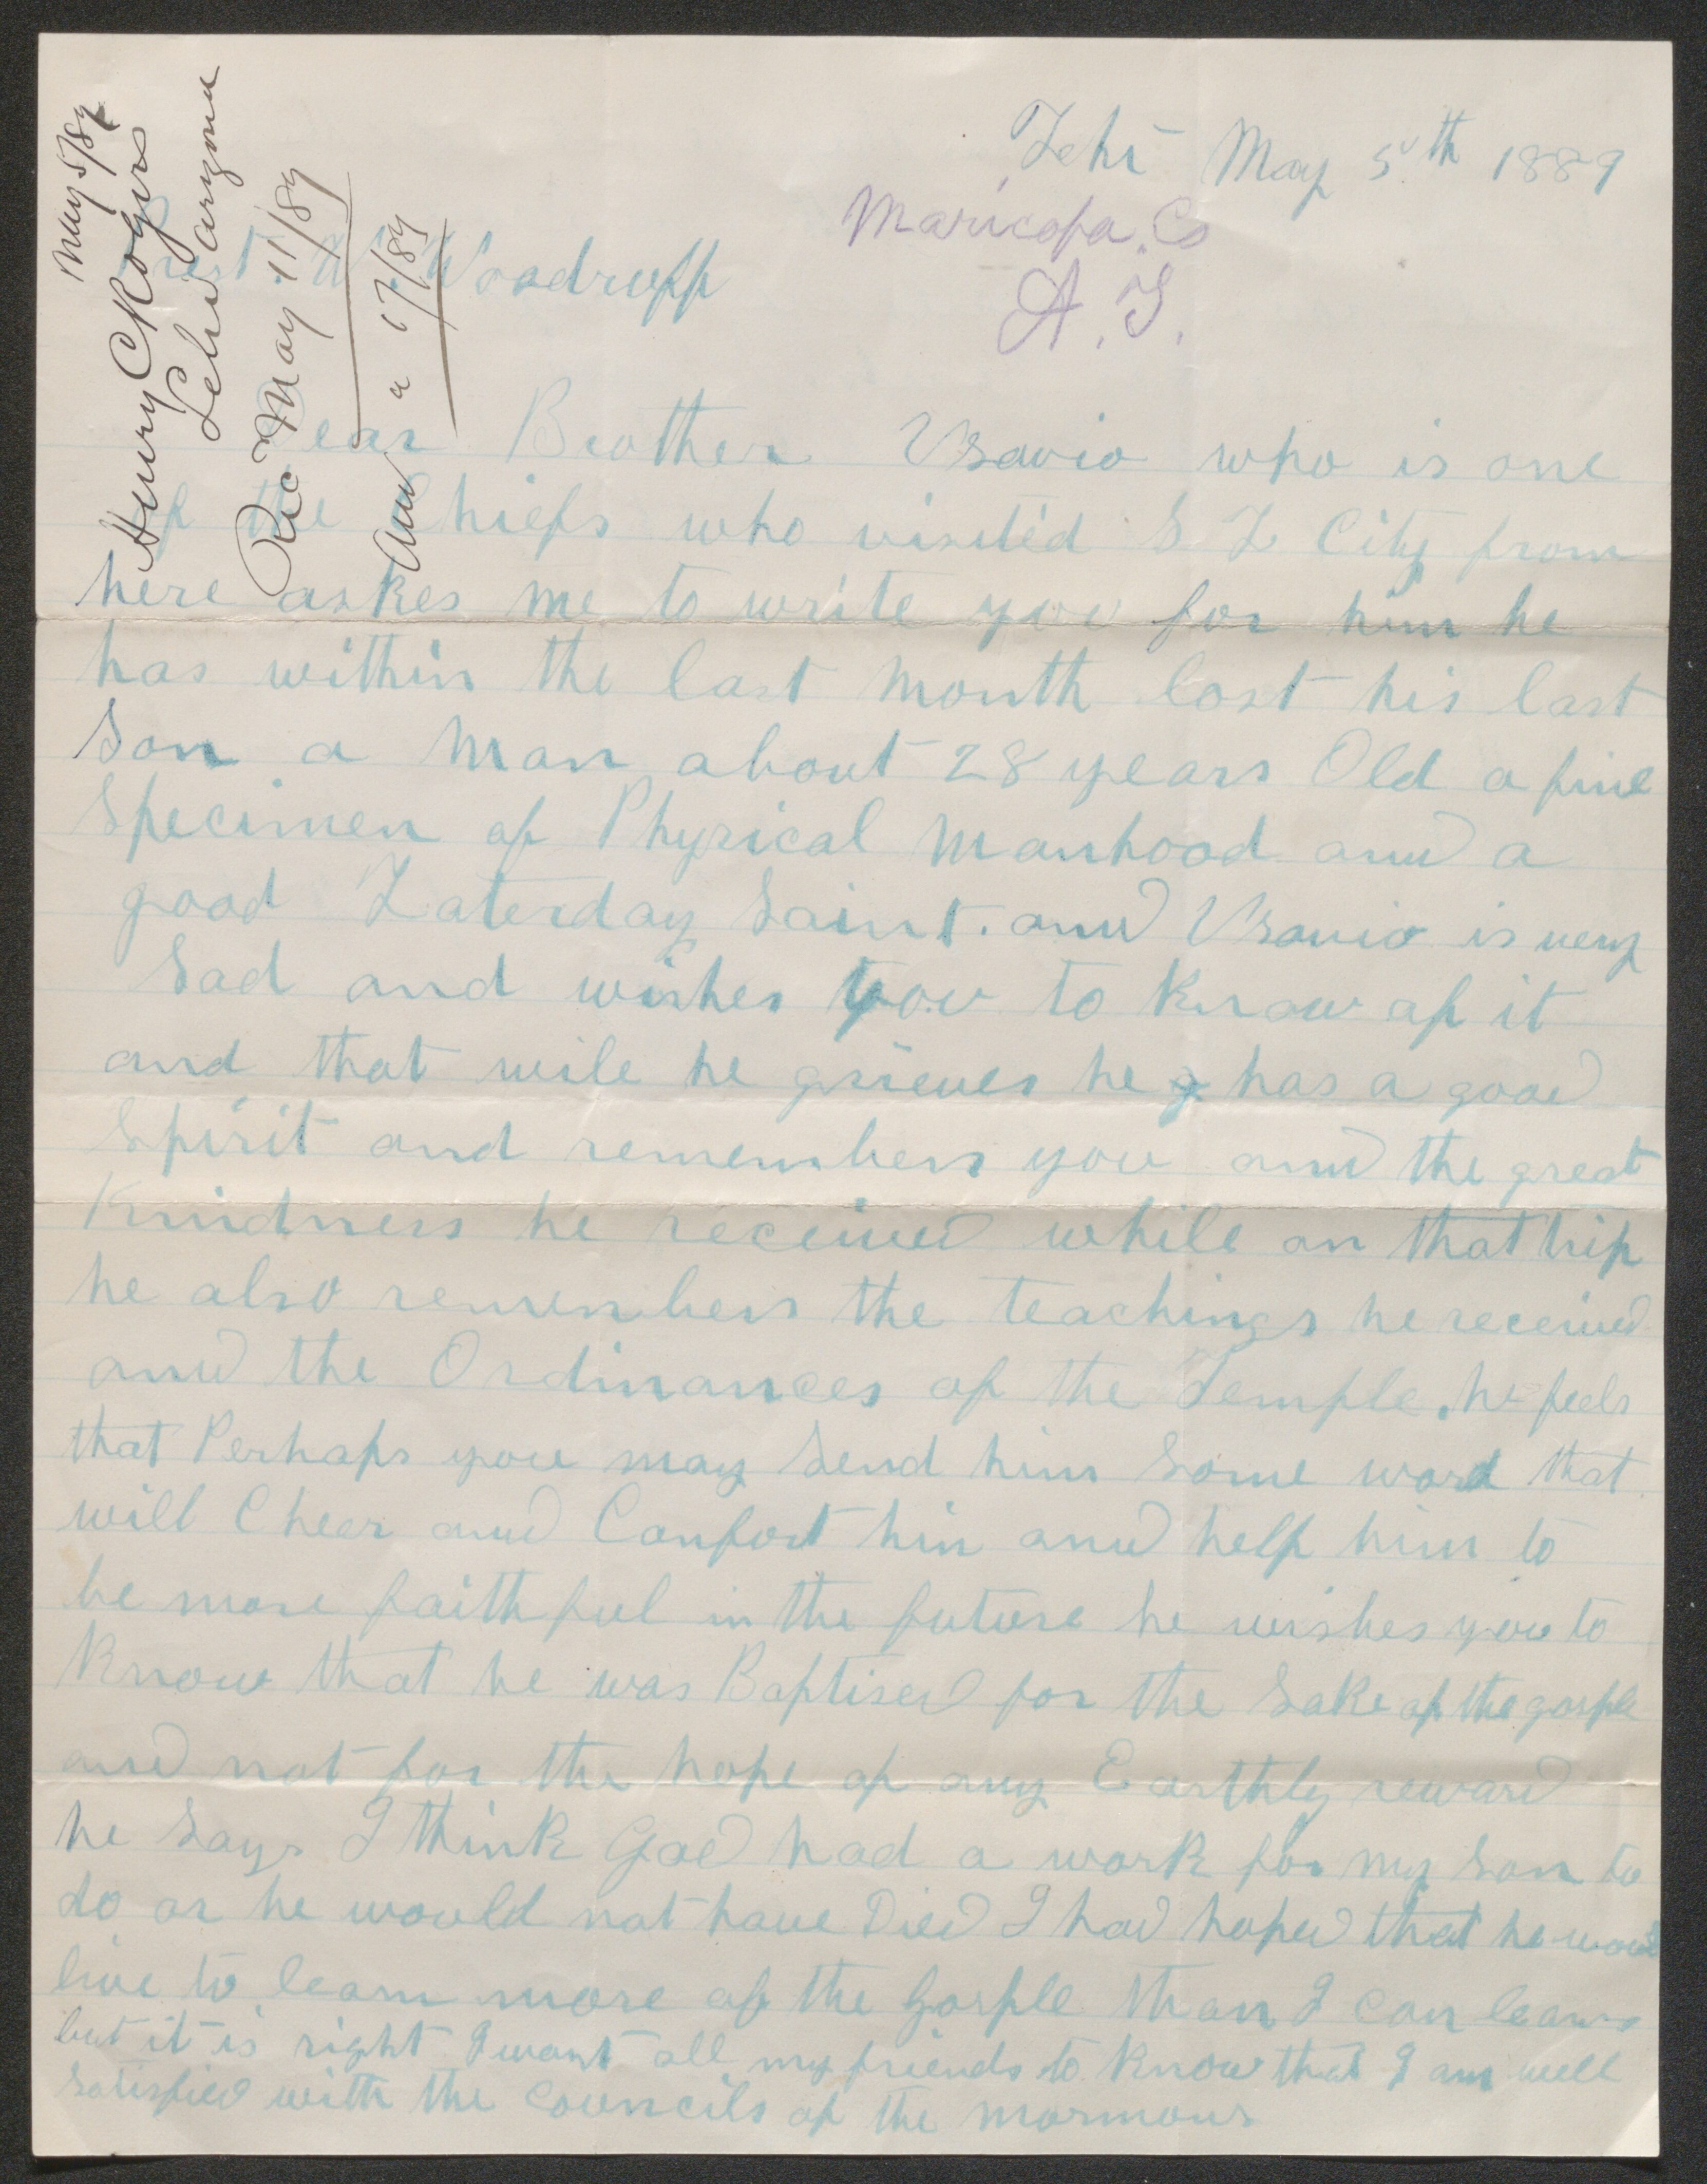 May 5/89
Henry C Rogers
Lehi Arizona
Rec May 11/89
Ans " 17/89
Lehi May 5th 1889
Maricopa. Co
A. T.
Prest. W. Woodruff
Dear Brother Vsavio who is one
of the Chiefs who visited S L City from
here askes me to write you for him he
has within the last month lost his last
Son a Man about 28 years Old a fine
Specimen of Physical Manhood and a
good Laterday Saint. and Vsavio is very
Sad and wishes you to Know of it
and that wile he grieves he has a good
Spirit and remembers you and the great
Kindness he received while on that trip
he also remembers the teachings he received
and the Ordinances of the Temple. he feels
that Perhaps you may Send him Some word that
will Cheer and Confort hin and help him to
be more faithful in the future he wishes you to
Know that he was Baptised for the Sake of the gosple
and not for the hope of any Earthly reward
he Says I think God had a work for my Son to
do or he would not have Died I had hoped that he would
live to learn more of the Gosple than I can learn
but it is right I want all my friends to Know that I am well
Satisfied with the Councils of the mormons